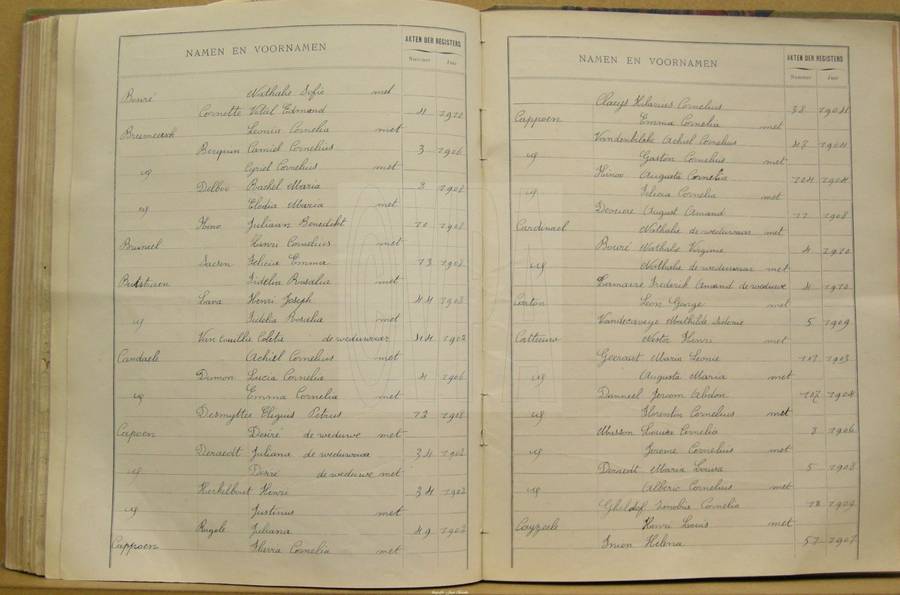 NAMEN EN VOORNAMEN
AKTEN DER REGISTERS
Nummer Jaar
Bouré Nathalie Sofie met
Cornette Vitail Edmond 4 1910
Breemeersch Leonia Cornelia met
Berquin Camiel Cornelius 3 1906
id Cyriel Cornelius met
Delboo Rachel Maria 3 1907
id Elodia Maria met
Hino Juliaan Benedikt 10 1908
Bruneel Henri Cornelius met
Saesen Felicia Emma 13 1902
Butstraen Fidelia Rosalia met
Lava Henri Joseph 44 1903
id Fidelia Rosalia met
Van Couillie Coleta de weduwaar 44 1902
Candaele Achiel Cornelius met
Dumon Lucia Cornelia 4 1906
id Emma Cornelia met
Desmyttre Eligius Petrus 12 1908
Capoen Desiré de weduwe met
Deraedt Juliana de weduwaar 34 1902
id Desiré de weduwe met
Herkelbout Henri 34 1902
id Justinus met
Rogele Juliana 49 1902
Cappoen Cornelia met
NAMEN EN VOORNAMEN
AKTEN DER REGISTERS
Nummer Jaar
Claeys Hilarius Cornelius 38 1904
Cappoen Emma Cornelia met
Vandenbilcke Achiel Cornelius 47 1904
id Gaston Cornelius met
Hinoo Augusta Cornelia 104 1904
id Silvia Cornelia met
August Amand 11 1908
Cardinael Nathalie de weduwaar met
Bouré Nathalie Virginie 4 1910
id Nathalie de weduwaar met
Lemaire Frederik Amand de weduwe 4 1910
Carton Leon George met
Vandecaveye Mathilde Sidonie 5 1909
Catteeuw Nestor Henri met
Geeraert Maria Leonie 101 1903
id Augusta Maria met
Danneel Jerom Abdon 107 1904
id Florentin Cornelius met
Musson Louise Cornelia 3 1906
id Jerome Cornelius met
Deraedt Maria Louisa 5 1908
id Alberic Cornelius met
Gheldof Zenobie Cornelia 18 1909
Cayzeele Henri Louis met
Inion Helena 57 1907